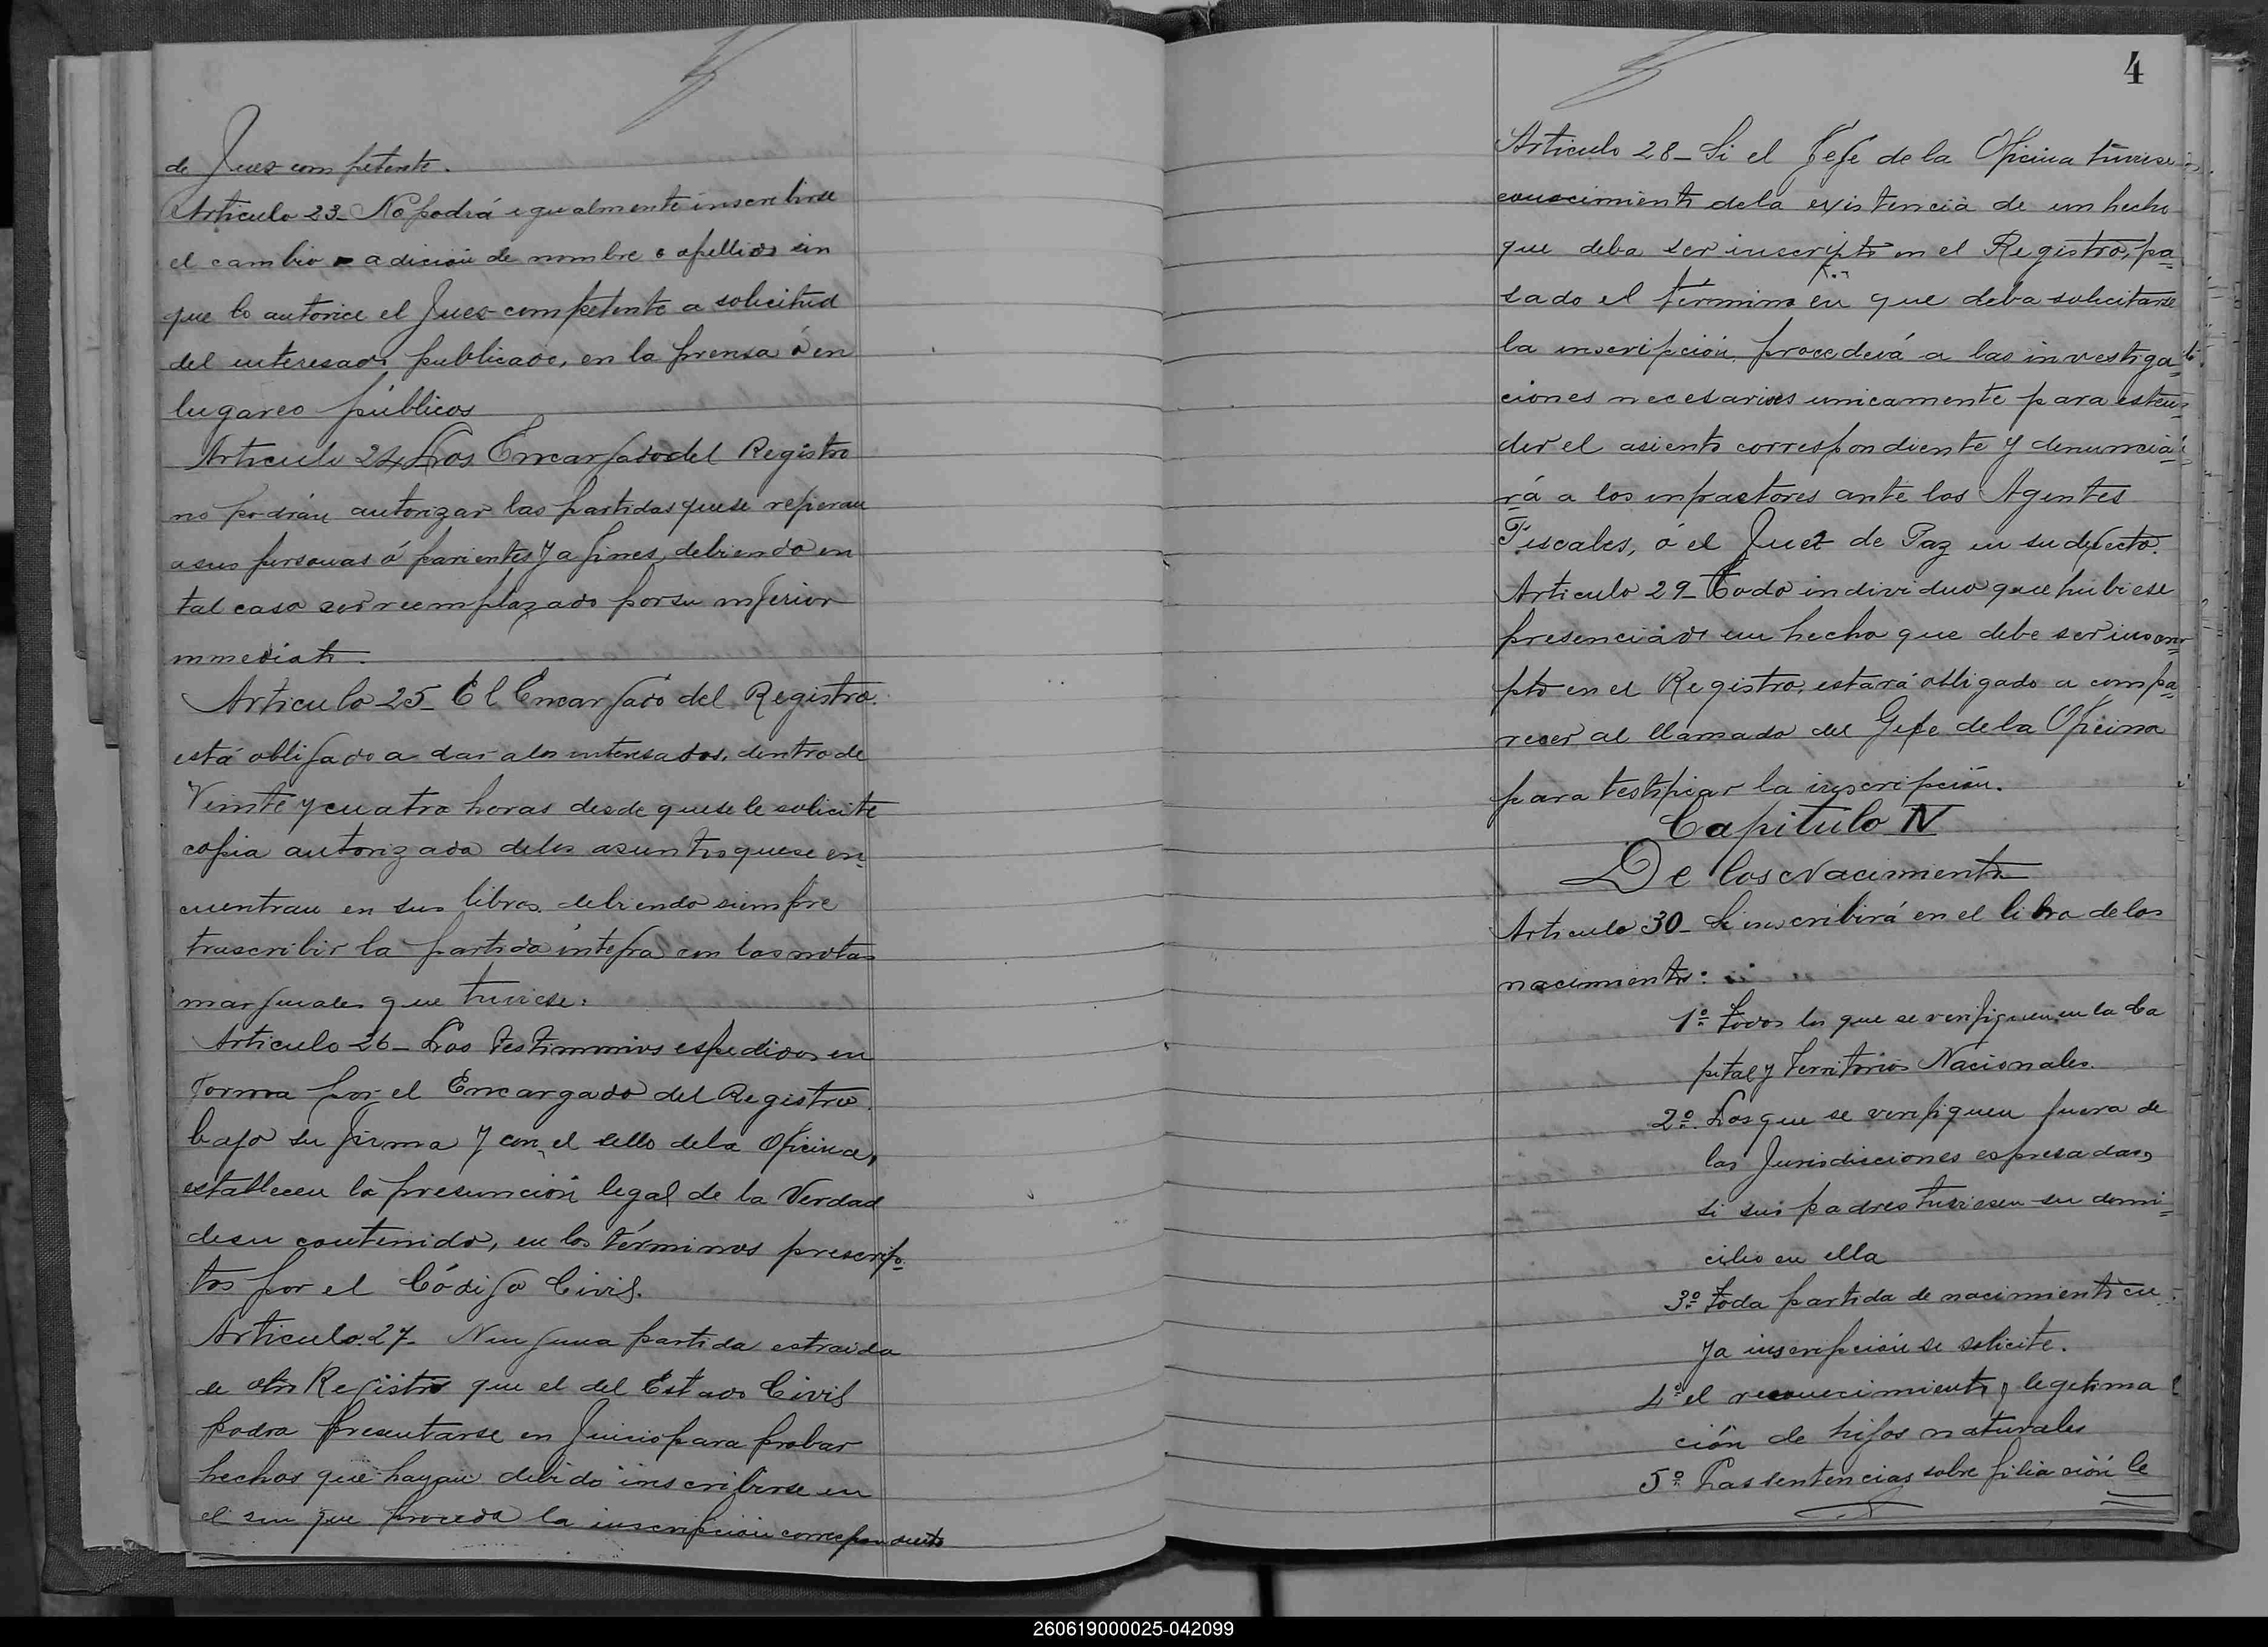 de Juez competente.
Articulo 23_ No podrá egualmente inscribirse
el cambio o adición de nombre o apellidos sin
que lo autorice el Juez competente a solicitud
del interesado publicado, en la prensa ó en
lugares públicos
Articulo 24_ Los Encargados del Registro
no podrán autorizar las partidas que se refieran
a sus personas ó parientes y afines, debiendo en
tal caso ser reemplazado por su inferior
inmediato.
Articulo 25_ El Encargado del Registro.
está obligado a dar a los interesados, dentro de
Veinte y cuatro horas desde que se le solicite
copia autorizada de los asuntos que se en=
cuentran en sus libros, debiendo siempre
trascribir la partida íntegra con las notas
marginales que tuviese.
Articulo 26_ Los testimonios espedidos en
forma por el Encargado del Registro.
bajo su firma y con el sello de la Oficina,
establecen la presunción legal de la Verdad
de su contenido, en los términos prescrip=
tos por el Código Civil.
Articulo 27_ Ninguna partida estraida
de otro Registro que el del Estado Civil
podra presentarse en Juicio para probar
hechos que hayan debido inscribirse en
el sin que proceda la inscripción correspondiente
4
Articulo 28_ Si el Jefe de la Oficina tuviese
conocimiento de la existencia de un hecho
que deba ser inscripto en el Registro, pa=
sado el termino en que deba solicitarse
la inscripción, procederá a las investiga=
ciones necesarias unicamente para esten=
der el asiento correspondiente y denuncia=
rá a los infractores ante los Agentes
Fiscales, ó el Juez de Paz en su defecto.
Articulo 29_ Todo individuo que hubiese
presenciado un hecho que debe ser inscri=
pto en el Registro, estará obligado a compa=
recer al llamado del Gefe de la Oficina
para testificar la inscripción.
Capitulo IV
De los Nacimientos
Articulo 30_ Se inscribirá en el libro de los
nacimientos:
1º Todos los que se verifiquen en la Ca
pital y Territorios Nacionales.
2º. Los que se verifiquen fuera de
las Jurisdicciones espresadas,
si sus padres tuviesen su domi=
cilio en ella
3º Toda partida de nacimiento cu
ya inscripción se solicite.
4º el reconocimiento y legitima
ción de hijos naturales
5º Las sentencias sobre filiación le
260619000025-042099